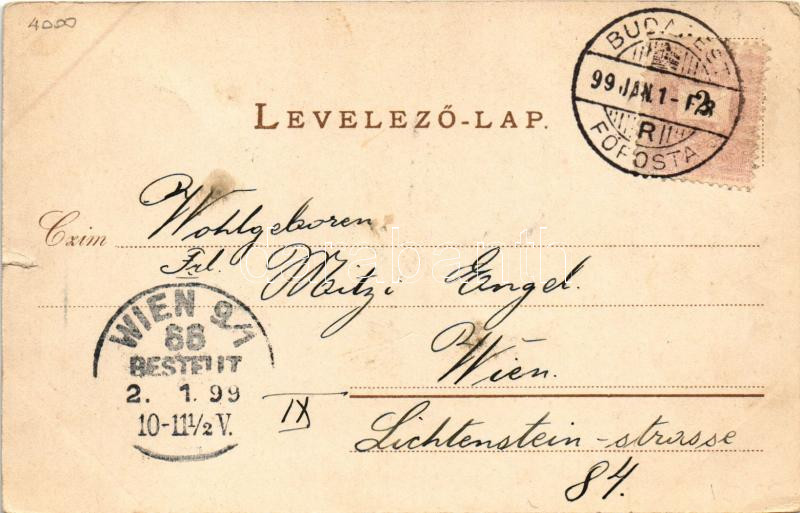 4000
BUDAPEST
99 JAN. 1 -
R
FŐPOSTA
LEVELEZŐ-LAP.
Czim
Wohlgeboren
Frl. Mitzi Engel.
Wien.
IX
Lichtenstein-strasse
84.
WIEN 9/1
88
BESTELLT
2. 1. 99
10-11½ V.
darabanth